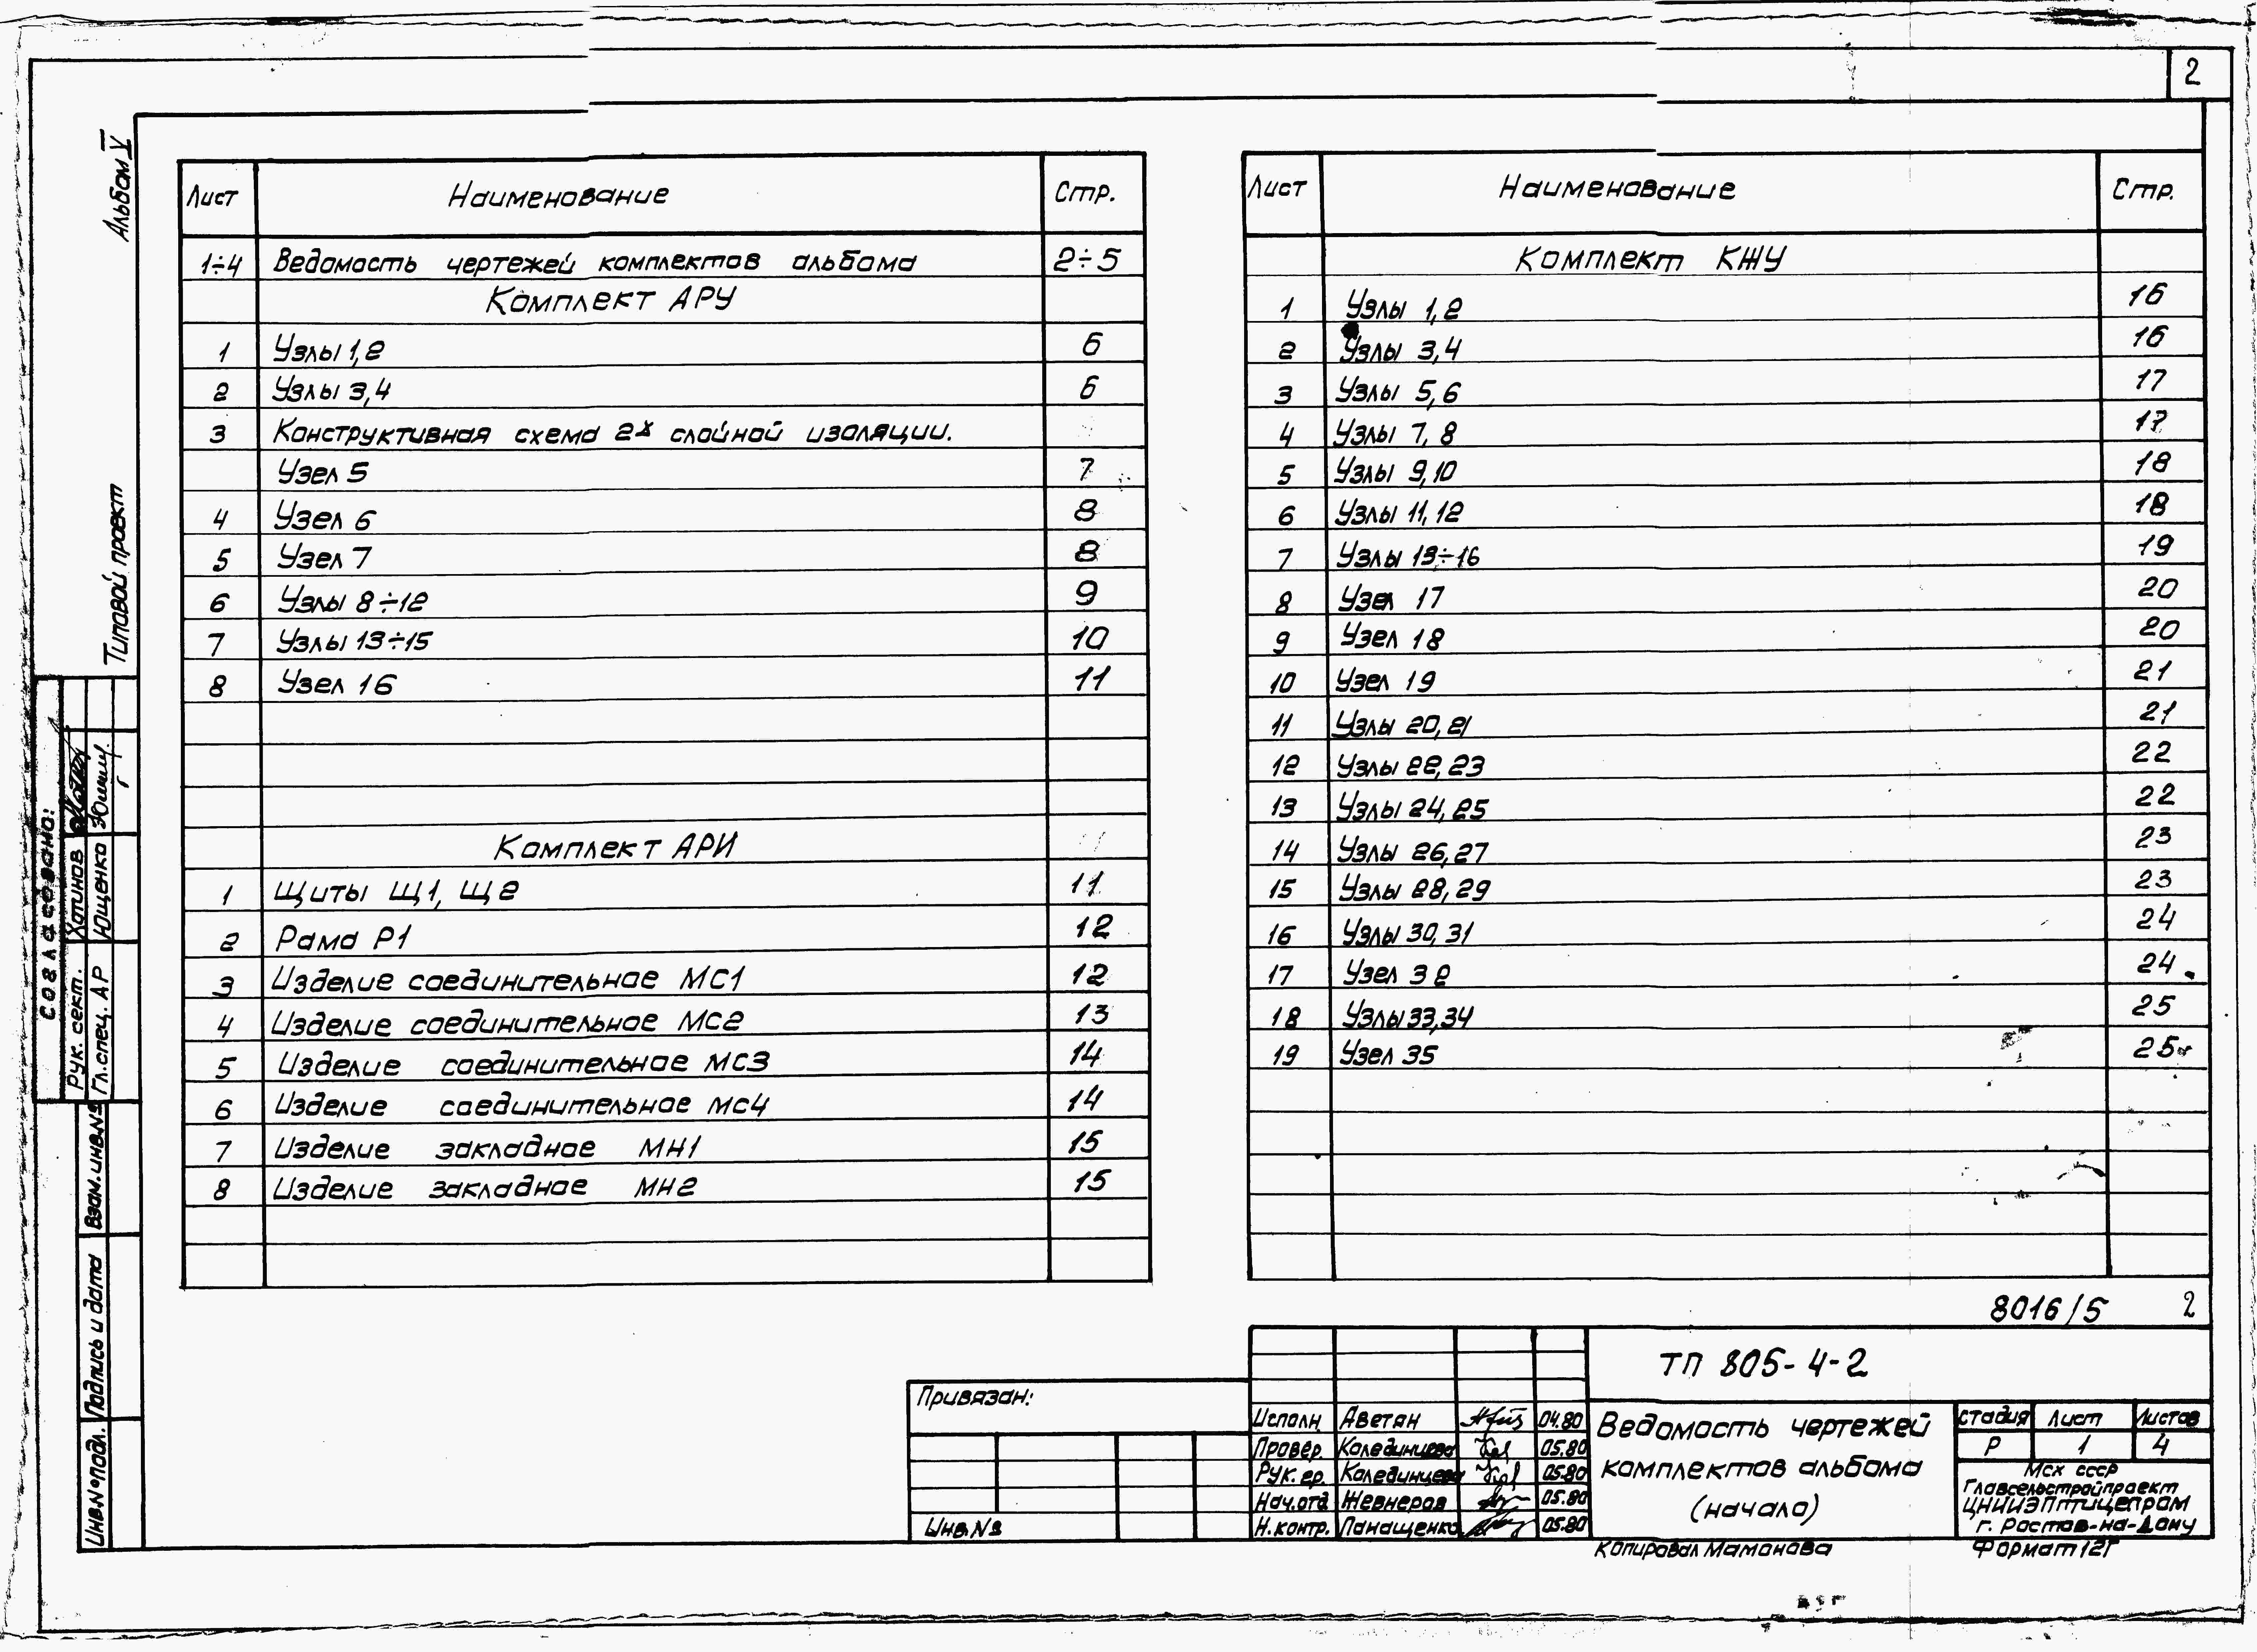 2
Альбом V
Типовой проект
Лист Наименование Стр.
1÷4 Ведомость чертежей комплектов альбома 2÷5
Комплект АРУ
1 Узлы 1,2 6
2 Узлы 3,4 6
3 Конструктивная схема 2х слойной изоляции.
Узел 5 7
4 Узел 6 8
5 Узел 7 8
6 Узлы 8÷12 9
7 Узлы 13÷15 10
8 Узел 16 11
Комплект АРИ
1 Щиты Щ1, Щ2 11
2 Рама Р1 12
3 Изделие соединительное МС1 12
4 Изделие соединительное МС2 13
5 Изделие соединительное МС3 14
6 Изделие соединительное МС4 14
7 Изделие закладное МН1 15
8 Изделие закладное МН2 15
Лист Наименование Стр.
Комплект КЖУ
1 Узлы 1,2 16
2 Узлы 3,4 16
3 Узлы 5,6 17
4 Узлы 7,8 17
5 Узлы 9,10 18
6 Узлы 11,12 18
7 Узлы 13÷16 19
8 Узел 17 20
9 Узел 18 20
10 Узел 19 21
11 Узлы 20,21 21
12 Узлы 22,23 22
13 Узлы 24,25 22
14 Узлы 26,27 23
15 Узлы 28,29 23
16 Узлы 30,31 24
17 Узел 32 24
18 Узлы 33,34 25
19 Узел 35 25
Согласовано:
Рук. сект. Хотинов
Гл. спец. АР Ющенко
Взам. инв.№
Подпись и дата
Инв.№ подл.
8016/5 2
Привязан:
Инв.№
Исполн. Аветян 04.80
Провер. Колединцева 05.80
Рук. гр. Колединцева 05.80
Нач.отд Жевнеров 05.80
Н.контр. Панащенко 05.80
ТП 805-4-2
Ведомость чертежей
комплектов альбома
(начало)
стадия Лист Листов
Р 1 4
Мсх ссср
Главсельстройпроект
ЦНИИЭПптицепром
г. Ростов-на-Дону
Копировал Мамонова Формат 12Г